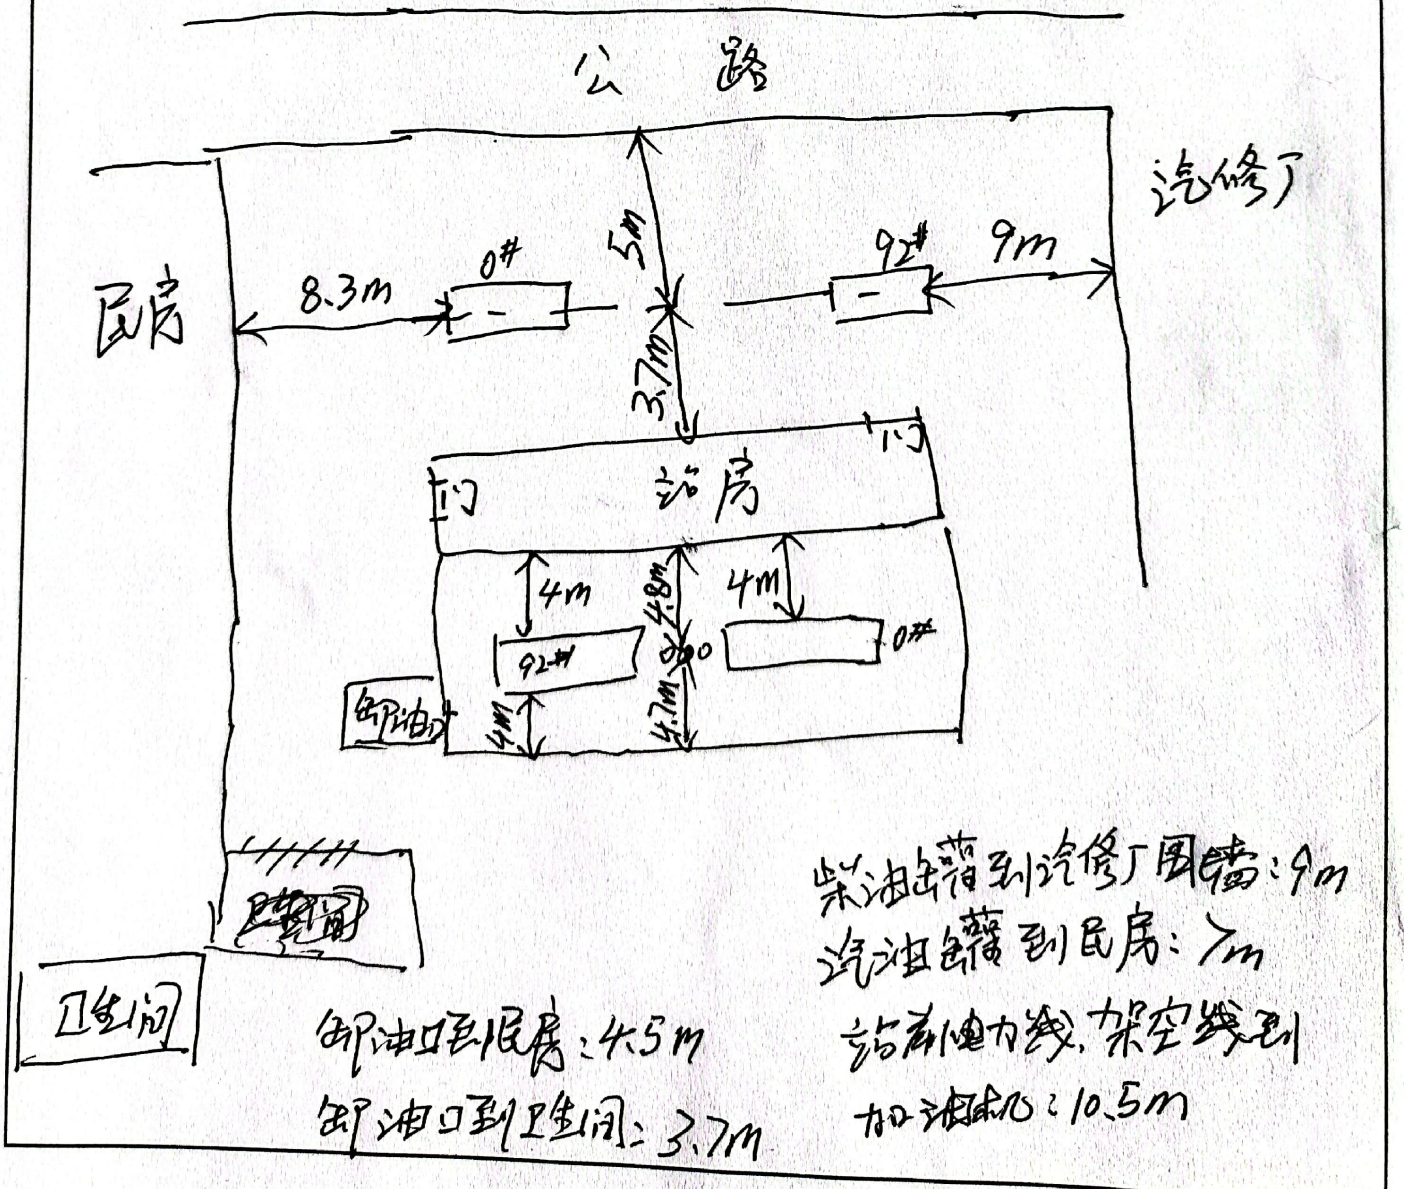 公 路
汽修厂
民房
8.3m
0#
5m
92#
9m
3.7m
门
站房
门
4m
4.8m
4m
92#
0#
卸油口
4m
4.7m
卫生间
柴油罐到汽修厂围墙:9m
汽油罐到民房:7m
站前电力线,架空线到
加油机:10.5m
卸油口到民房:4.5m
卸油口到卫生间:3.7m